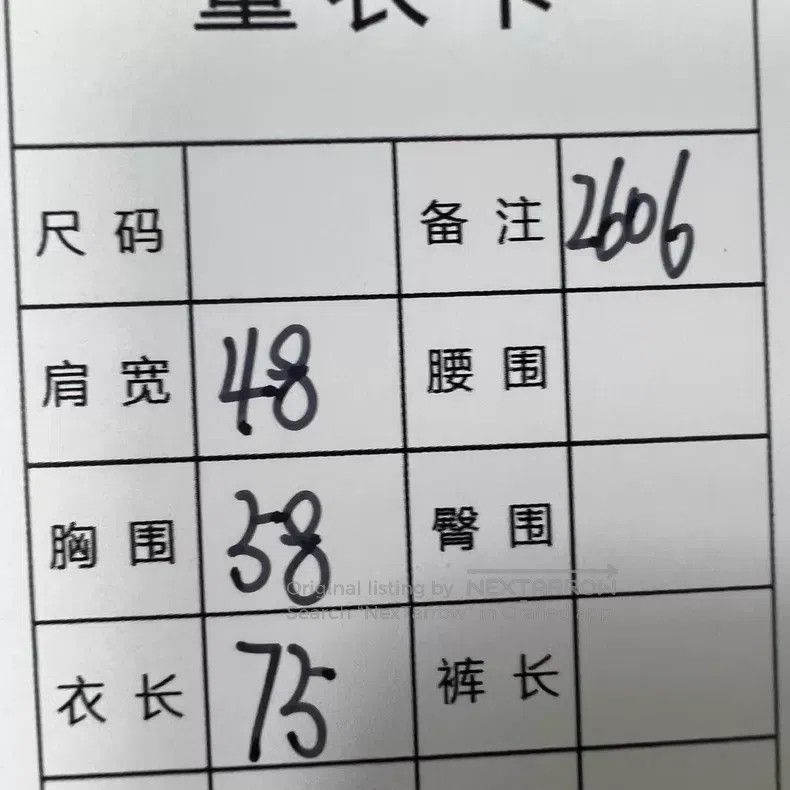 量衣卡
尺码 备注 2606
肩宽 48 腰围
胸围 58 臀围
Original listing by NEXTARROW
Search "NexTarrow" in
衣长 75 裤长